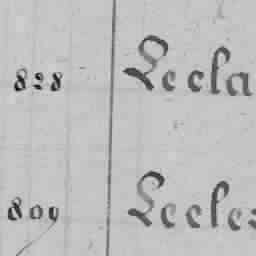 828 Lecla
809 Lecler